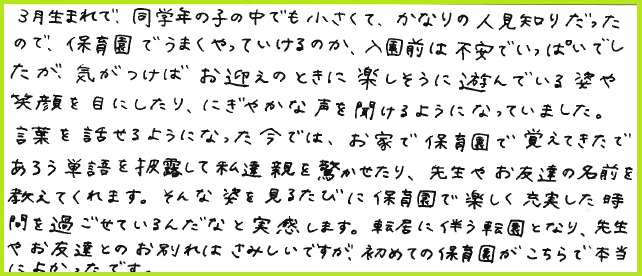 3月生まれで、同学年の子の中でも小さくて、かなりの人見知りだった
ので、保育園でうまくやっていけるのか、入園前は不安でいっぱいでし
たが、気がつけばお迎えのときに楽しそうに遊んでいる姿や
笑顔を目にしたり、にぎやかな声を聞けるようになっていました。
言葉を話せるようになった今では、お家で保育園で覚えてきたで
あろう単語を披露して私達親を驚かせたり、先生やお友達の名前を
教えてくれます。そんな姿を見るたびに保育園で楽しく充実した時
間を過ごせているんだなと実感します。転居に伴う転園となり、先生
やお友達とのお別れはさみしいですが、初めての保育園がこちらで本当
によかったです。